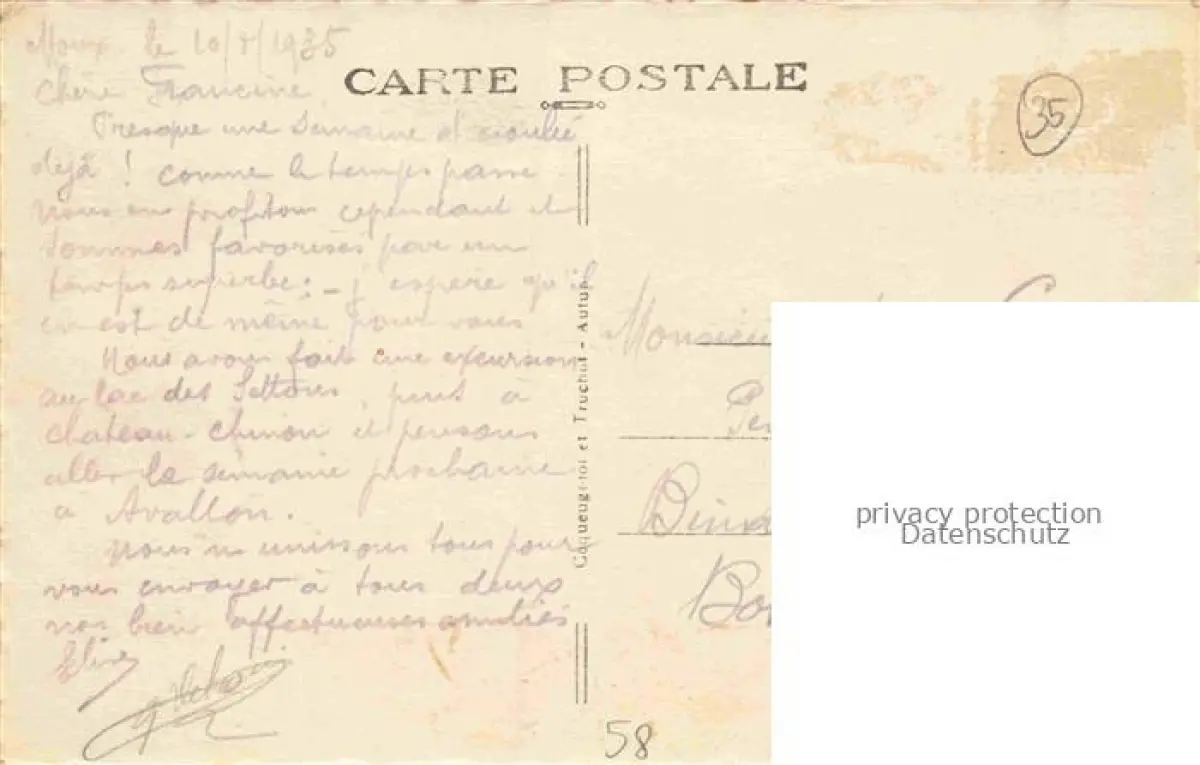 Moux le 10/8/1935
Chère Francine
Presque une semaine d'écoulée
déjà ! comme le temps passe
nous en profitons cependant et
sommes favorisés par un
temps superbe : - j'espère qu'il
en est de même pour vous
Nous avons fait une excursion
au lac des Settons, puis à
Chateau-Chinon et pensons
aller la semaine prochaine
à Avallon.
Nous nous unissons tous pour
vous envoyer à tous deux
nos bien affectueuses amitiés
CARTE POSTALE
35
Coqueugniot et Truchot - Autun
Monsieur
58
privacy protection
Datenschutz